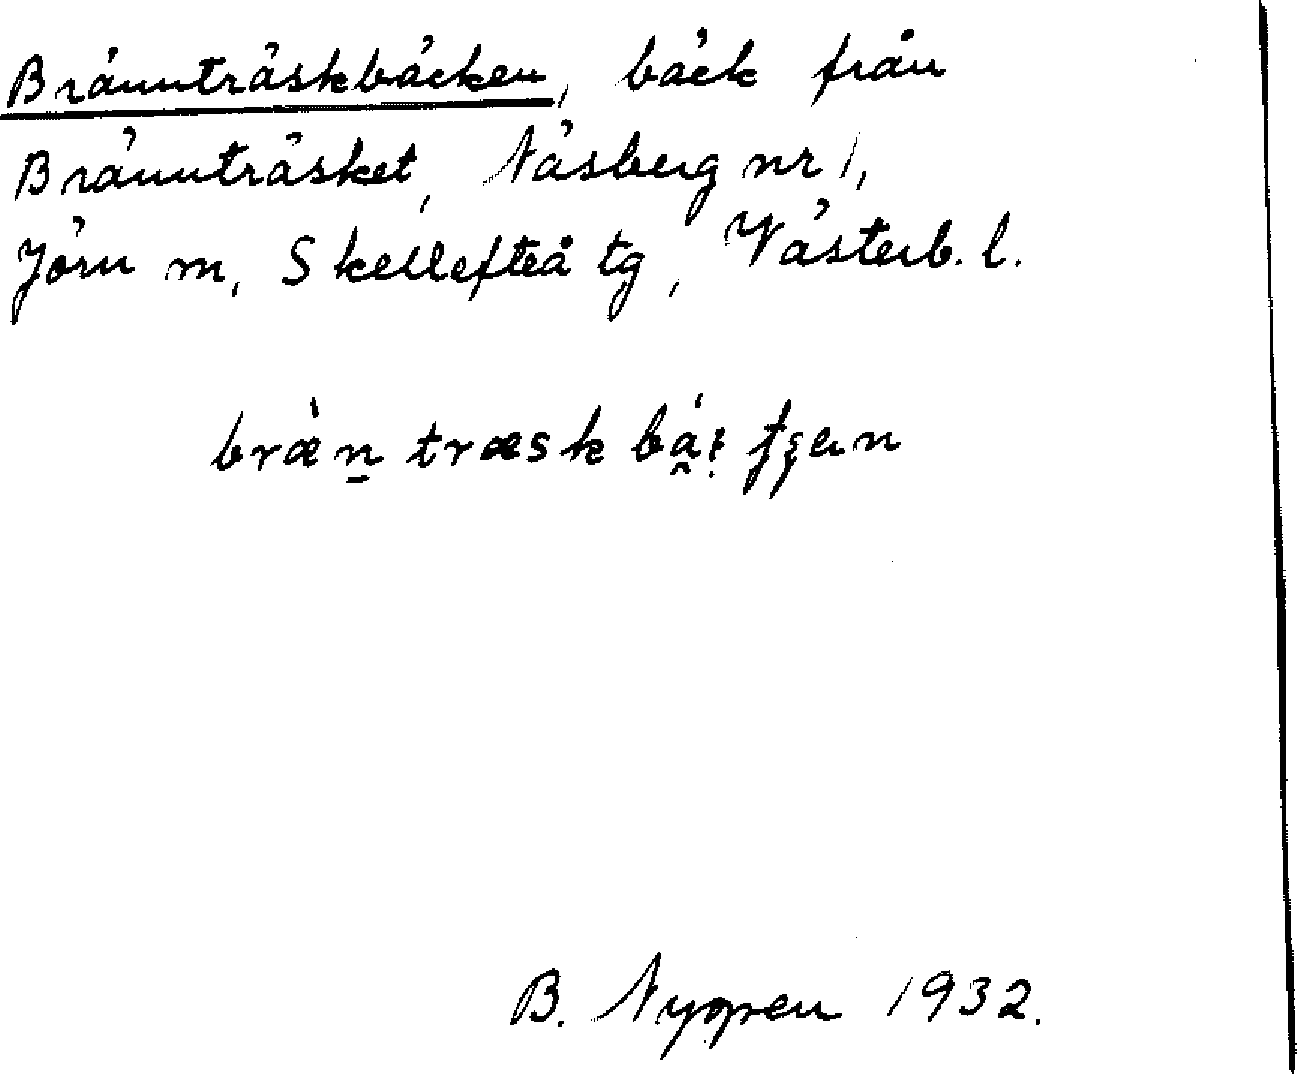 Brännträskbäcken, bäck från
Brännträsket, Näsberg nr 1,
Jörn sn, Skellefteå tg, Västerb. l.
bræ̀n̠træskbá̯꞉tʂen
B. Nyppen 1932.